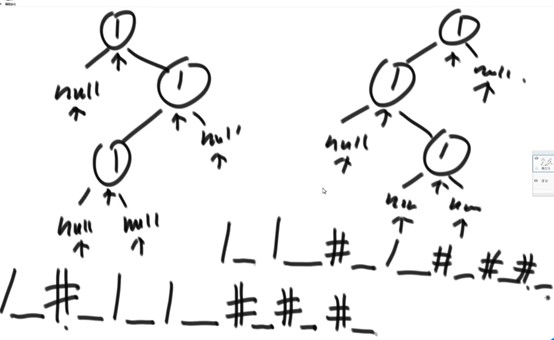 1
null
1
null
1
null null
1
null.
1
null
1
1_1_#_1_#_#_#_
1_#_1_1_#_#_#_